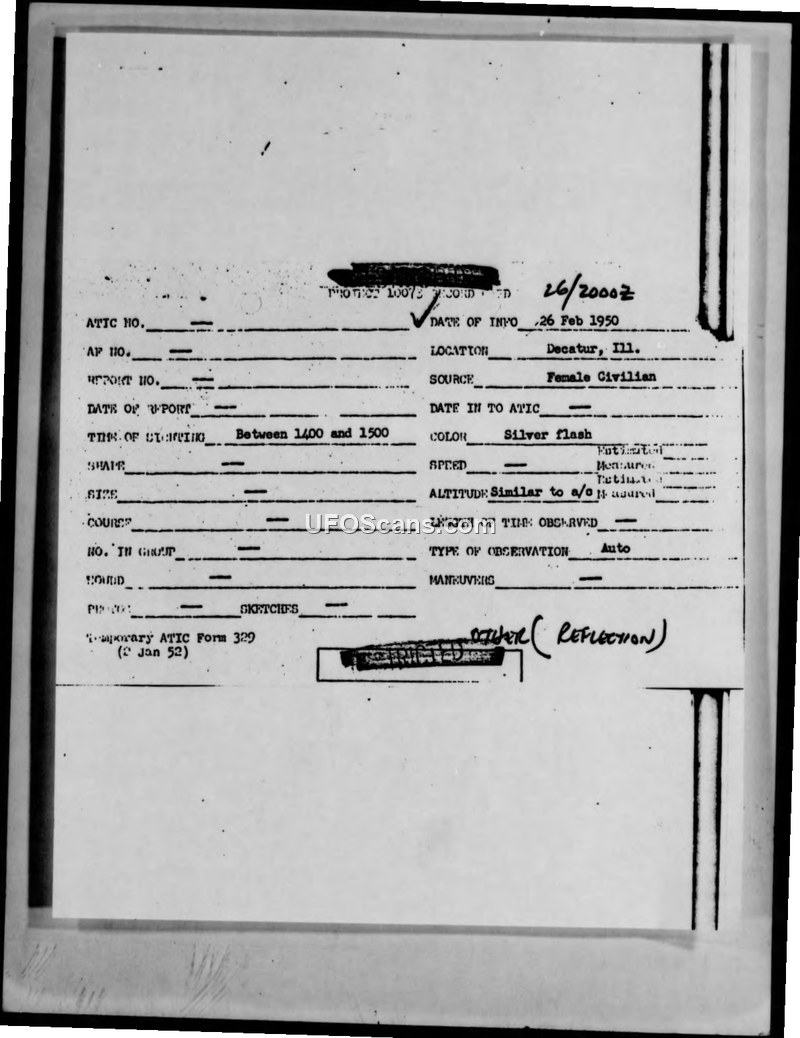 PROJECT 10073 RECORD CARD 26/2000Z
ATIC NO. — ✓ DATE OF INFO 26 Feb 1950
AF NO. — LOCATION Decatur, Ill.
REPORT NO. — SOURCE Female Civilian
DATE OF REPORT — DATE IN TO ATIC —
TIME OF SIGHTING Between 1400 and 1500 COLOR Silver flash
SHAPE — SPEED — Estimated
Measured
SIZE — ALTITUDE Similar to a/c Estimated
Measured
COURSE — LENGTH OF TIME OBSERVED —
UFOScans.com
NO. IN GROUP — TYPE OF OBSERVATION Auto
SOUND — MANEUVERS —
PHOTOS — SKETCHES —
Temporary ATIC Form 329
(2 Jan 52)
OTHER (REFLECTION)
RESTRICTED